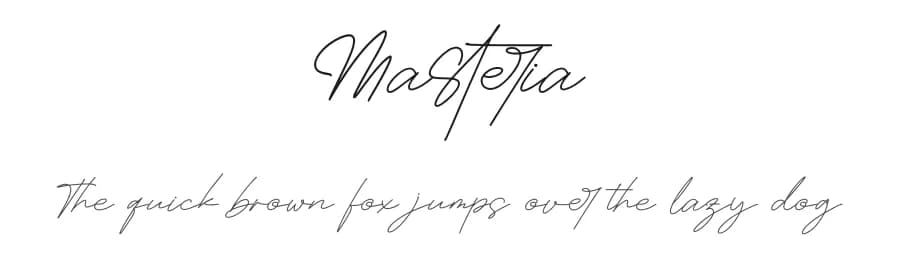 Masteria
The quick brown fox jumps over the lazy dog